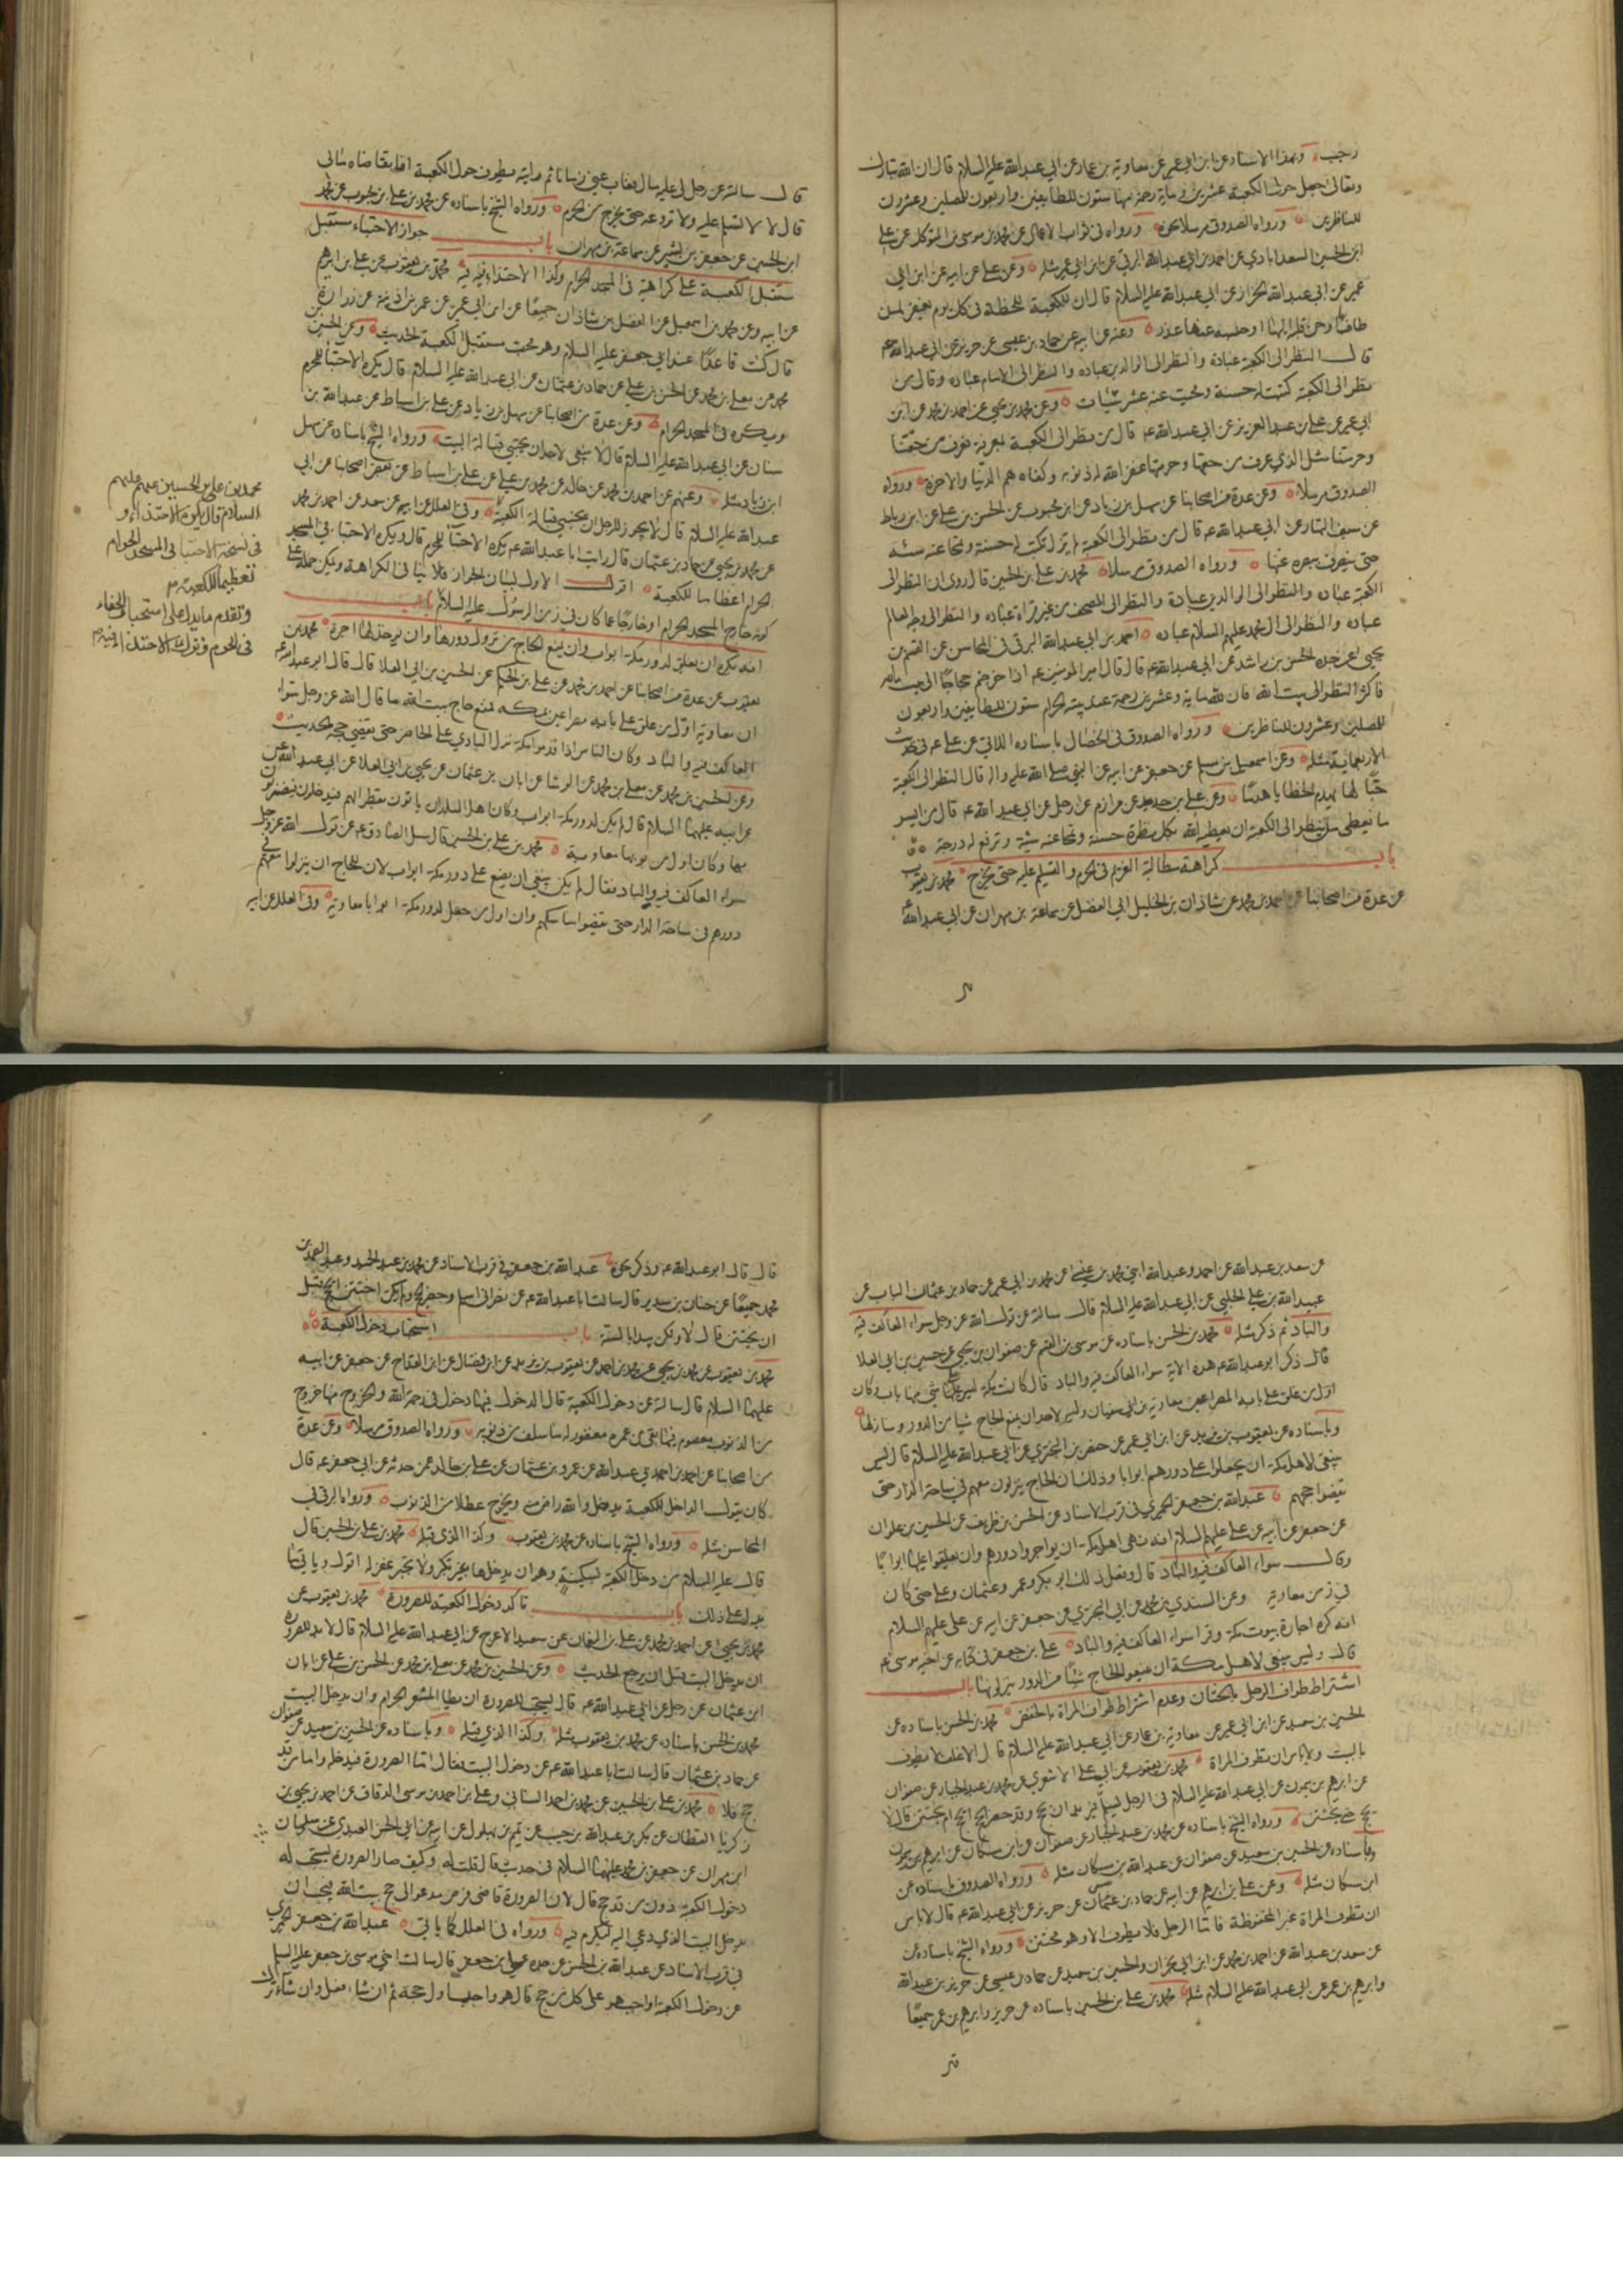 رجب وبهذا الاسناد عن ابن ابي عمير عن معاوية بن عمار عن ابي عبدالله عليه السلام قال ان الله تبارك
وتعالى جعل حول الكعبة عشرين ومأية رحمة منها ستون للطايفين واربعون للمصلين وعشرون
للناظرين ورواه الصدوق مرسلا نحوه ورواه في ثواب الاعمال عن محمد بن موسى بن المتوكل عن علي
ابن الحسين السعدابادي عن احمد بن ابي عبدالله البرقي عن ابن ابي عمير مثله وعن علي عن ابيه عن ابن ابي
عمير عن ابي عبدالله الخزاز عن ابي عبدالله عليه السلام قال ان للكعبة للحظة في كل يوم يغفر لمن
طاف بها وحن قلبه اليها او حبسه عنها عذر وعنه عن ابيه عن حماد بن عيسى عن حريز عن ابي عبدالله عم
قال النظر الى الكعبة عبادة والنظر الى الوالدين عبادة والنظر الى الامام عبادة وقال من
نظر الى الكعبة كتبت له حسنة ومحيت عنه عشر سيئات وعن محمد بن يحيى عن احمد بن محمد عن ابن
ابي عمير عن علي بن عبد العزيز عن ابي عبدالله عم قال من نظر الى الكعبة بمعرفة فعرف من حقنا
وحرمتنا مثل الذي عرف من حقها وحرمتها غفر الله له ذنوبه وكفاه هم الدنيا والاخرة ورواه
الصدوق مرسلا وعن عدة من اصحابنا عن سهل بن زياد عن ابن محبوب عن الحسن بن علي عن ابن رباط
عن سيف التمار عن ابي عبدالله عم قال من نظر الى الكعبة لم يزل تكتب له حسنة وتمحا عنه سيئة
حتى ينصرف ببصره عنها ورواه الصدوق مرسلا محمد بن علي بن الحسين قال روى ان النظر الى
الكعبة عبادة والنظر الى الوالدين عبادة والنظر الى المصحف من غير قراة عبادة والنظر الى وجه العالم
عبادة والنظر الى ال محمد عليهم السلام عبادة احمد بن ابي عبدالله البرقي في المحاسن عن القسم بن
يحيى عن جده الحسن بن راشد عن ابي عبدالله عم قال قال امير المومنين عم اذا خرجتم حجاجا الى بيت الله
فاكثروا النظر الى بيت الله فان لله ماية وعشرين رحمة عند بيته الحرام ستون للطايفين واربعون
للمصلين وعشرون للناظرين ورواه الصدوق في الخصال باسناده الاتي عن علي عم في حديث
الاربعماية مثله وعن اسمعيل بن مسلم عن جعفر عن ابيه عن النبي صلى الله عليه واله قال النظر الى الكعبة
حبا لها يهدم الخطايا هدما وعن علي بن حديد عن مرازم عن رجل عن ابي عبدالله عم قال من ايسر
ما يعطى من ينظر الى الكعبة ان يعطيه الله بكل نظرة حسنة وتمحا عنه سيئة وترفع له درجة
باب كراهة مطالبة الغريم في الحرم والتسليم عليه حتى يخرج محمد بن يعقوب
عن عدة من اصحابنا عن احمد بن محمد عن شاذان بن الخليل ابي الفضل عن سماعة بن مهران عن ابي عبدالله
قال سالته عن رجل لي عليه مال فغاب عني زمانا ثم رايته يطوف حول الكعبة افاتقاضاه مالي
قال لا لا تسلم عليه ولا تروعه حتى يخرج من الحرم ورواه الشيخ باسناده عن محمد بن علي بن محبوب عن محمد
ابن الحسين عن جعفر بن بشير عن سماعة بن مهران باب جواز الاحتباء مستقبل
مستقبل الكعبة على كراهية في المسجد الحرام وكذا الاحتذاء فيه محمد بن يعقوب عن علي بن ابرهيم
عن ابيه وعن محمد بن اسمعيل عن الفضل بن شاذان جميعا عن ابن ابي عمير عن عمر بن اذينة عن زرارة
قال كنت قاعدا عند ابي جعفر عليه السلام وهو محتب مستقبل الكعبة الحديث وعن الحسين
محمد عن معلى بن محمد عن الحسن بن علي عن حماد بن عثمان عن ابي عبدالله عليه السلام قال يكره الاحتبا للمحرم
ويكره في المسجد الحرام وعن عدة من اصحابنا عن سهل بن زياد عن علي بن اسباط عن عبدالله بن
سنان عن ابي عبدالله عليه السلام قال لا ينبغي لاحد ان يحتبي قبالة البيت ورواه الشيخ باسناده عن سهل
ابن زياد مثله وعنهم عن احمد بن محمد بن خالد عن محمد بن علي عن علي بن اسباط عن بعض اصحابنا عن ابي
عبدالله عليه السلام قال لا يجوز للرجل ان يحتبي قبالة الكعبة وفي العلل عن ابيه عن سعد عن احمد بن محمد
عن محمد بن يحيى عن حماد بن عثمان قال رايت ابا عبدالله عم يكره الاحتبا للمحرم قال ويكره الاحتبا في المسجد
الحرام اعظاما للكعبة اقول الاول لبيان الجواز فلا ينافي الكراهة ويمكن حمله على
كونه خارج المسجد الحرام او خارجا عما كان في زمن الرسول عليه السلام باب
انه يكره ان يعلق لدور مكة ابواب وان يمنع الحاج من نزول دورها وان يوخذ لها اجرة محمد بن
يعقوب عن عدة من اصحابنا عن احمد بن محمد عن علي بن الحكم عن الحسين بن ابي العلا قال قال ابو عبدالله عم
ان معاوية اول من علق على بابه مصراعين بمكة فمنع حاج بيت الله ما قال الله عز وجل سواء
العاكف فيه والباد وكان الناس اذا قدموا مكة نزل البادي على الحاضر حتى يقضي حجه الحديث
وعن الحسين بن محمد عن معلى بن محمد عن الوشا عن ابان بن عثمان عن يحيى بن ابي العلا عن ابي عبد الله عن
عن ابيه عليهما السلام قال لم يكن لدور مكة ابواب وكان اهل البلدان ياتون بقطرانهم فيدخلون فيضربون
بها وكان اول من بوبها معاوية محمد بن علي بن الحسين قال سئل الصادق عم عن قول الله عز وجل
سواء العاكف فيه والباد فقال لم يكن ينبغي ان يضع على دور مكة ابواب لان للحاج ان ينزلوا معهم في
دورهم في ساحة الدار حتى يقضوا مناسكهم وان اول من جعل لدور مكة ابوابا معاوية وفي العلل عن ابيه
محمد بن علي بن الحسين عنهم عليهم
السلام قال يكره الاحتذاء و
في نسخة الاحتبا في المسجد الحرام
تعظيما للكعبة
وتقدم ما يدل على استحباب الحفاء
في الحرم وترك الاحتذاء فيه
عن سعد بن عبدالله عن احمد وعبدالله ابني محمد بن عيسى عن محمد بن ابي عمير عن حماد بن عثمان الناب عن
عبيدالله بن علي الحلبي عن ابي عبدالله عليه السلام قال سالته عن قول الله عز وجل سواء العاكف فيه
والباد ثم ذكر مثله محمد بن الحسن باسناده عن موسى بن القسم عن صفوان بن يحيى عن حسين بن ابي العلا
قال ذكر ابو عبدالله عم هذه الاية سواء العاكف فيه والباد قال كانت مكة ليس على شي منها باب وكان
اول من علق على بابه المصراعين معاوية بن ابي سفيان وليس لاحد ان يمنع الحاج شيا من الدور ومنازلها
وباسناده عن يعقوب بن يزيد عن ابن ابي عمير عن حفص بن البختري عن ابي عبدالله عليه السلام قال ليس
ينبغي لاهل مكة ان يجعلوا على دورهم ابوابا وذلك ان الحاج ينزلون معهم في ساحة الدار حتى
يقضوا حجهم عبدالله بن جعفر الحميري في قرب الاسناد عن الحسن بن ظريف عن الحسين بن علوان
عن جعفر عن ابيه عن علي عليهم السلام انه نهى اهل مكة ان يواجروا دورهم وان يعلقوا عليها ابوابا
وقال سواء العاكف فيه والباد قال وفعل ذلك ابو بكر وعمر وعثمان وعلي حتى كان
في زمن معاوية وعن السندي بن محمد عن ابي البختري عن جعفر عن ابيه عن علي عليهم السلام
انه كره اجارة بيوت مكة وقرا سواء العاكف فيه والباد علي بن جعفر في كتابه عن اخيه موسى عم
قال وليس ينبغي لاهل مكة ان يمنعوا الحاج شيئا من الدور ينزلونها باب
اشتراط طواف الرجل بالختان وعدم اشتراط طواف المراة بالخفض محمد بن الحسن باسناده عن
الحسين بن سعيد عن ابن ابي عمير عن معاوية بن عمار عن ابي عبدالله عليه السلام قال الاغلف لا يطوف
بالبيت ولا باس ان تطوف المراة محمد بن يعقوب عن ابي علي الاشعري عن محمد بن عبد الجبار عن صفوان
عن ابرهيم بن ميمون عن ابي عبدالله عليه السلام في الرجل يسلم فيريد ان يحج وقد حضر الحج ايحج ام يختتن قال لا
يحج حتى يختتن ورواه الشيخ باسناده عن محمد بن عبد الجبار عن صفوان عن ابن مسكان عن ابرهيم بن ميمون
وباسناده عن الحسين بن سعيد عن صفوان عن عبدالله بن مسكان مثله ورواه الصدوق باسناده عن
ابن مسكان مثله وعن علي بن ابرهيم عن ابيه عن حماد بن عثمان عن حريز عن ابي عبدالله عم قال لا باس
ان تطوف المراة غير المخفوضة فاما الرجل فلا يطوف الا وهو مختتن ورواه الشيخ باسناده عن
عن سعد بن عبدالله عن احمد بن محمد عن ابن ابي نجران والحسين بن سعيد عن حماد بن عيسى عن حريز بن عبدالله
وابرهيم بن عمر عن ابي عبدالله عليه السلام مثله محمد بن علي بن الحسين باسناده عن حريز وابرهيم بن عمر جميعا
قال قال ابو عبدالله عم وذكر نحوه عبدالله بن جعفر في قرب الاسناد عن محمد بن عبد الحميد وعبد الصمد بن
محمد جميعا عن حنان بن سدير قال سالت ابا عبدالله عم عن نصراني اسلم وحضر الحج ولم يكن اختتن ايحج قبل
ان يختتن قال لا ولكن يبدا بالسنة باب استحباب دخول الكعبة
محمد بن يعقوب عن محمد بن يحيى عن محمد بن احمد عن يعقوب بن يزيد عن ابن فضال عن ابن القداح عن جعفر عن ابيه
عليهما السلام قال سالته عن دخول الكعبة قال الدخول فيها دخول في رحمة الله والخروج منها خروج
من الذنوب معصوم فيما بقى من عمره مغفور له ما سلف من ذنوبه ورواه الصدوق مرسلا وعن عدة
من اصحابنا عن احمد بن ابي عبدالله عن عمرو بن عثمان عن علي بن خالد عمن حدثه عن ابي جعفر عم قال
كان يقول الداخل الكعبة يدخل والله راض عنه ويخرج عطلا من الذنوب ورواه البرقي في
المحاسن مثله ورواه الشيخ باسناده عن محمد بن يعقوب وكذا الذي قبله محمد بن علي بن الحسين قال
قال عليه السلام من دخل الكعبة بسكينة وهو ان يدخلها غير متكبر ولا متجبر غفر له اقول وياتي ما
يدل على ذلك باب تاكد دخول الكعبة للصرورة محمد بن يعقوب عن
محمد بن يحيى عن احمد بن محمد عن علي بن النعمان عن سعيد الاعرج عن ابي عبدالله عليه السلام قال لا بد للصرورة
ان يدخل البيت قبل ان يرجع الحديث وعن الحسين بن محمد عن معلى بن محمد عن الحسن بن علي عن ابان
ابن عثمان عن رجل عن ابي عبدالله عم قال يستحب للصرورة ان يطا المشعر الحرام وان يدخل البيت
محمد بن الحسن باسناده عن محمد بن يعقوب مثله وكذا الذي قبله وباسناده عن الحسين بن سعيد عن صفوان
عن حماد بن عثمان قال سالت ابا عبدالله عم عن دخول البيت فقال اما الصرورة فيدخله واما من قد
حج فلا محمد بن علي بن الحسين عن محمد بن احمد السناني وعلي بن احمد بن موسى الدقاق عن احمد بن يحيى بن
زكريا القطان عن بكر بن عبدالله بن حبيب عن تميم بن بهلول عن ابيه عن ابي الحسن العبدي عن سليمان
ابن مهران عن جعفر بن محمد عليهما السلام في حديث قال قلت له وكيف صار الصرورة يستحب له
دخول الكعبة دون من قد حج قال لان الصرورة قاضي فرض مدعو الى حج بيت الله فيجب ان
يدخل البيت الذي دعي اليه ليكرم فيه ورواه في العلل كما ياتي عبدالله بن جعفر الحميري
في قرب الاسناد عن عبدالله بن الحسن عن جده علي بن جعفر قال سالت اخي موسى بن جعفر عليه السلام
عن دخول الكعبة اواجب هو على كل من حج قال هو واجب اول حجة ثم ان شاء فعل وان شاء ترك